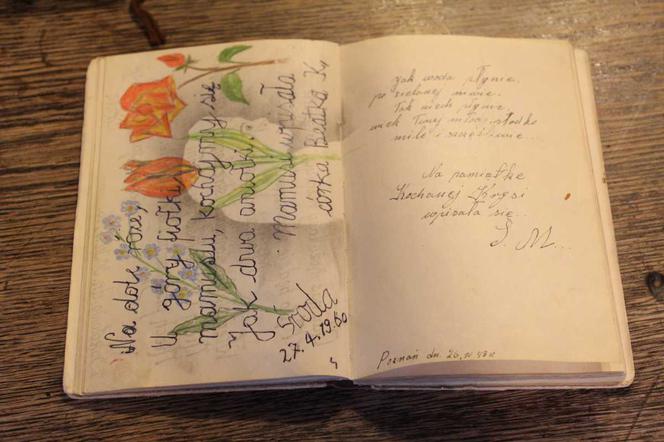 Na dole róże,
U góry fiołki
mamusiu, kochajmy się
jak dwa aniołki
Mamusi wpisała
córka Beatka K
Środa
27.4.1960
Jak woda płynie
po zielonej niwie.
Tak niech płynie
wiek Twój miło, słodko
mile i szczęśliwie...
Na pamiątkę
Kochanej Krysi
wpisała się...
S. M...
Poznań dn. 20. IV 48 r